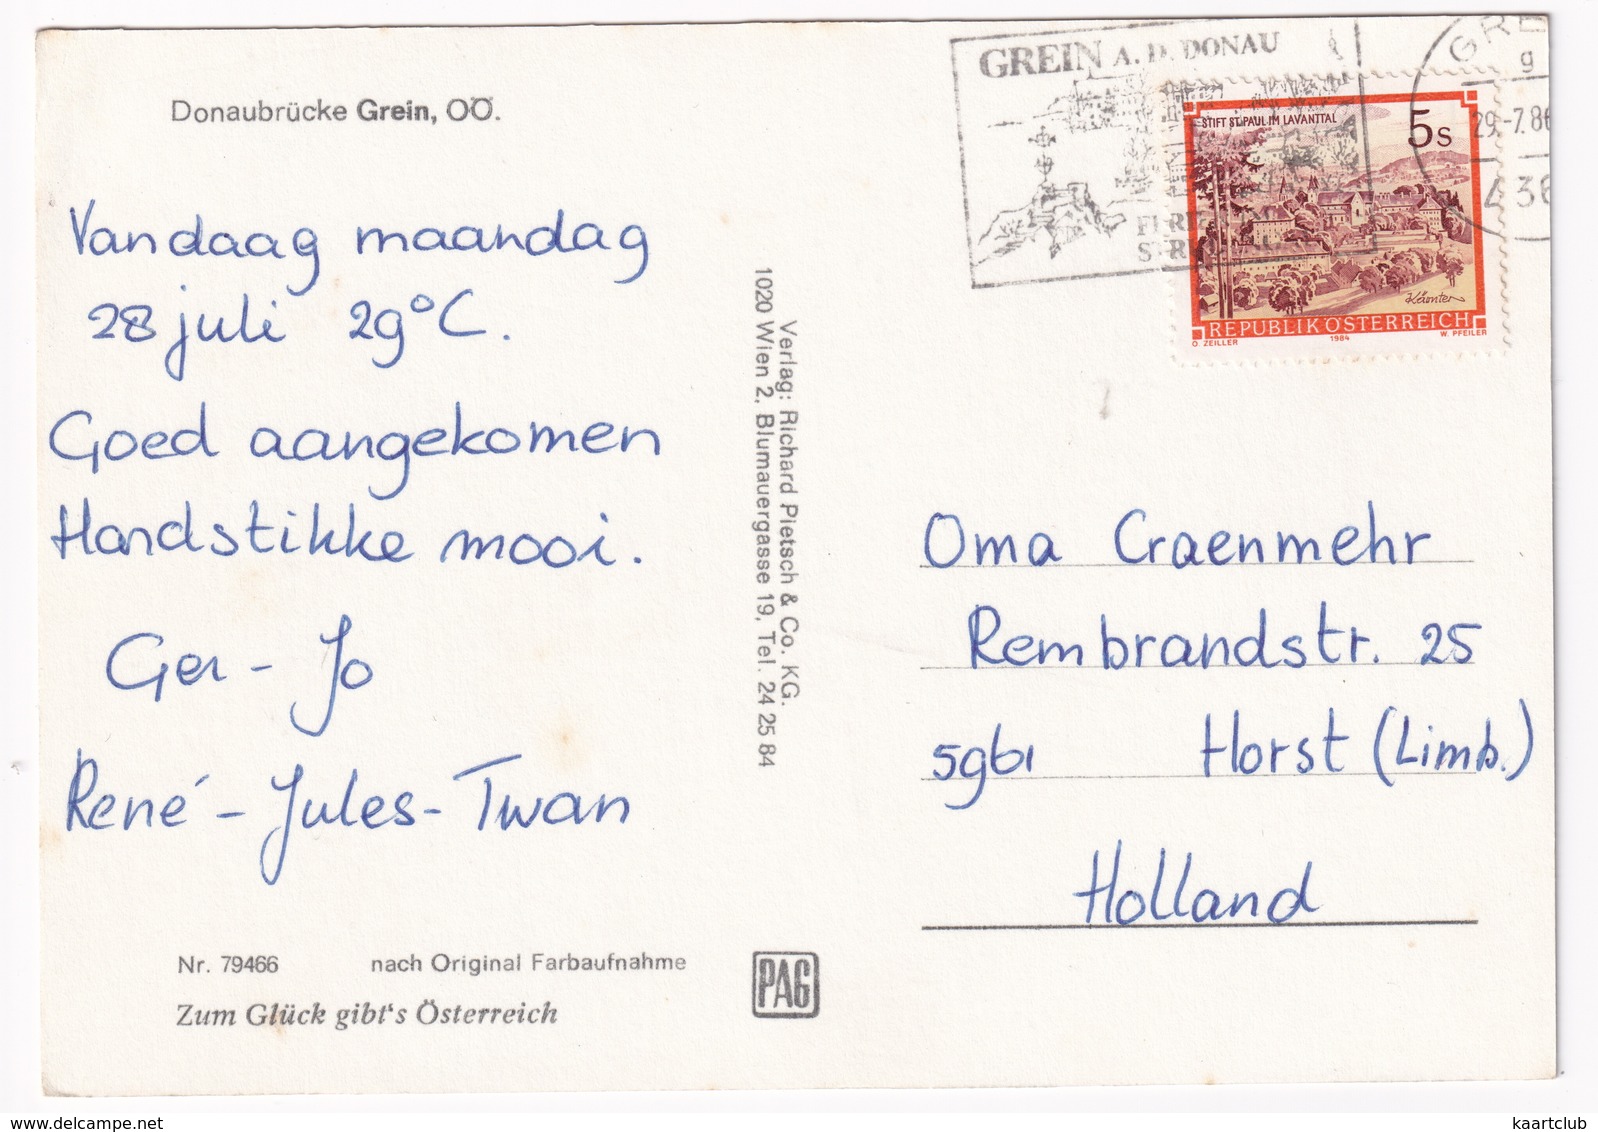 Donaubrücke Grein, OÖ.
Vandaag maandag
28 juli 29°C.
Goed aangekomen
Handstikke mooi.
Ger - Jo
René - Jules - Twan
Nr. 79466 nach Original Farbaufnahme
Zum Glück gibt's Österreich
Verlag: Richard Pietsch & Co. KG.
1020 Wien 2, Blumauergasse 19, Tel. 24 25 84
PAG
GREIN A. D. DONAU
29.-7.86
STIFT ST. PAUL IM LAVANTTAL
5s
Kärnten
REPUBLIK ÖSTERREICH
O. ZEILLER 1984 W. PFEILER
Oma Craenmehr
Rembrandstr. 25
5961 Horst (Limb.)
Holland
www.delcampe.net
kaartclub